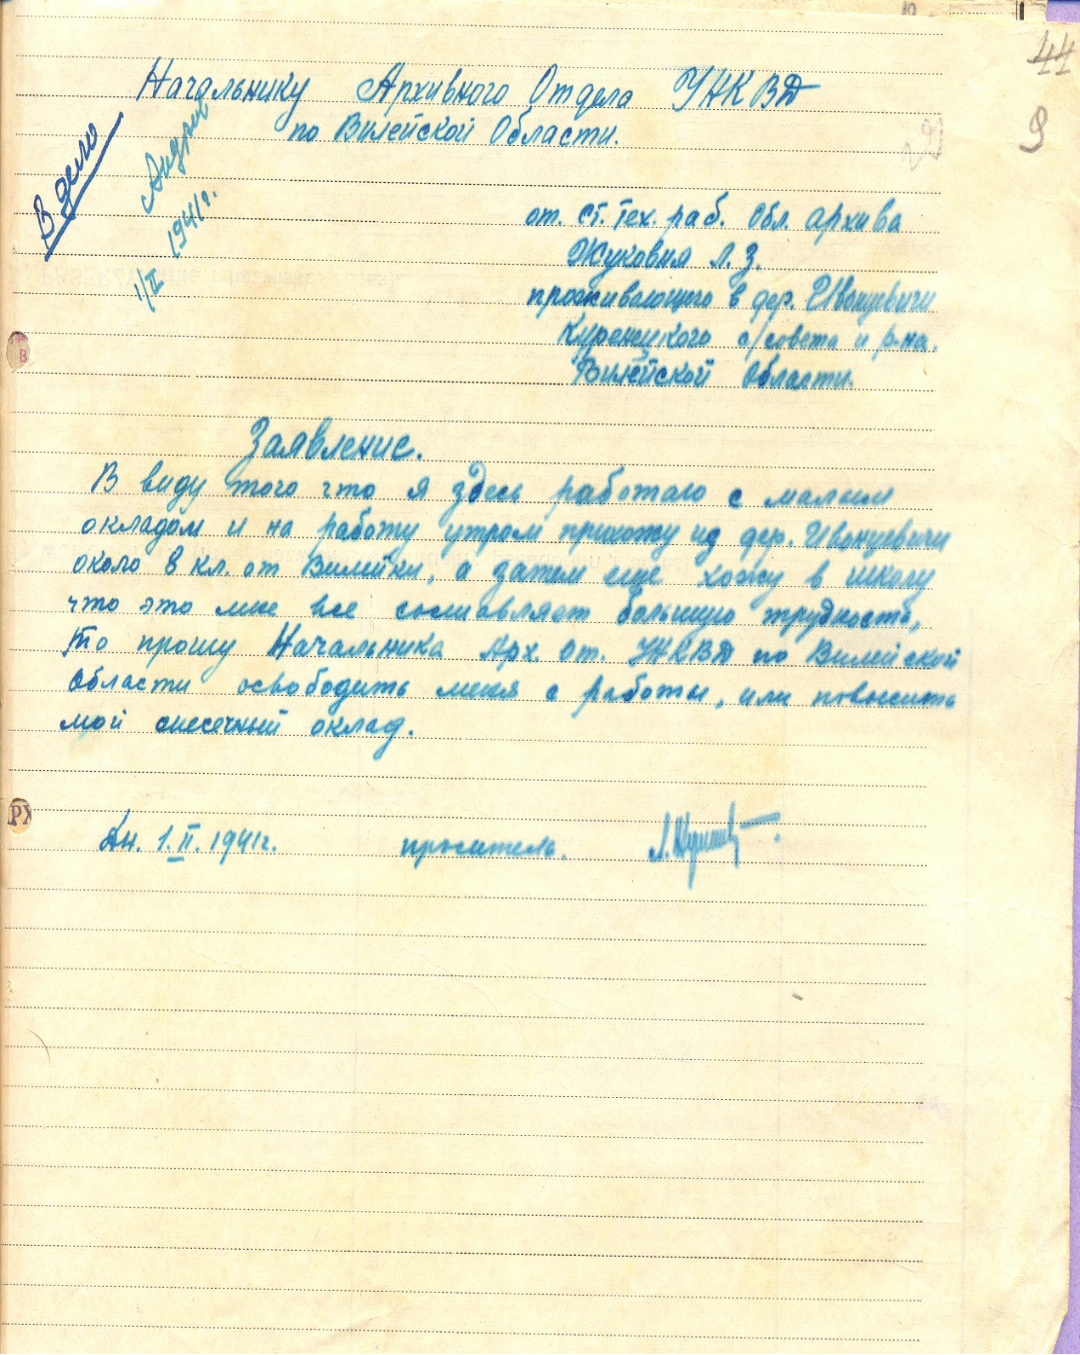 44
9
Начальнику Архивного Отдела УНКВД
по Вилейской Области.
В дело
1/II 1941г.
от. Ст. Тех. раб. Обл. архива
Л. З.
проживающего в дер. Ивонцевичи
Куренецкого с/совета и р-на.
Вилейской Области.
Заявление.
В виду того что я здесь работаю с малым
окладом и на работу утром прихожу из дер. Ивонцевичи
около 8 кл. от Вилейки, а затем еще хожу в школу
что это мне все составляет большую трудность,
то прошу Начальника Арх. От. УНКВД по Вилейской
Области освободить меня с работы, или повысить
мой месечный оклад.
Дн. 1.II.1941г. проситель.